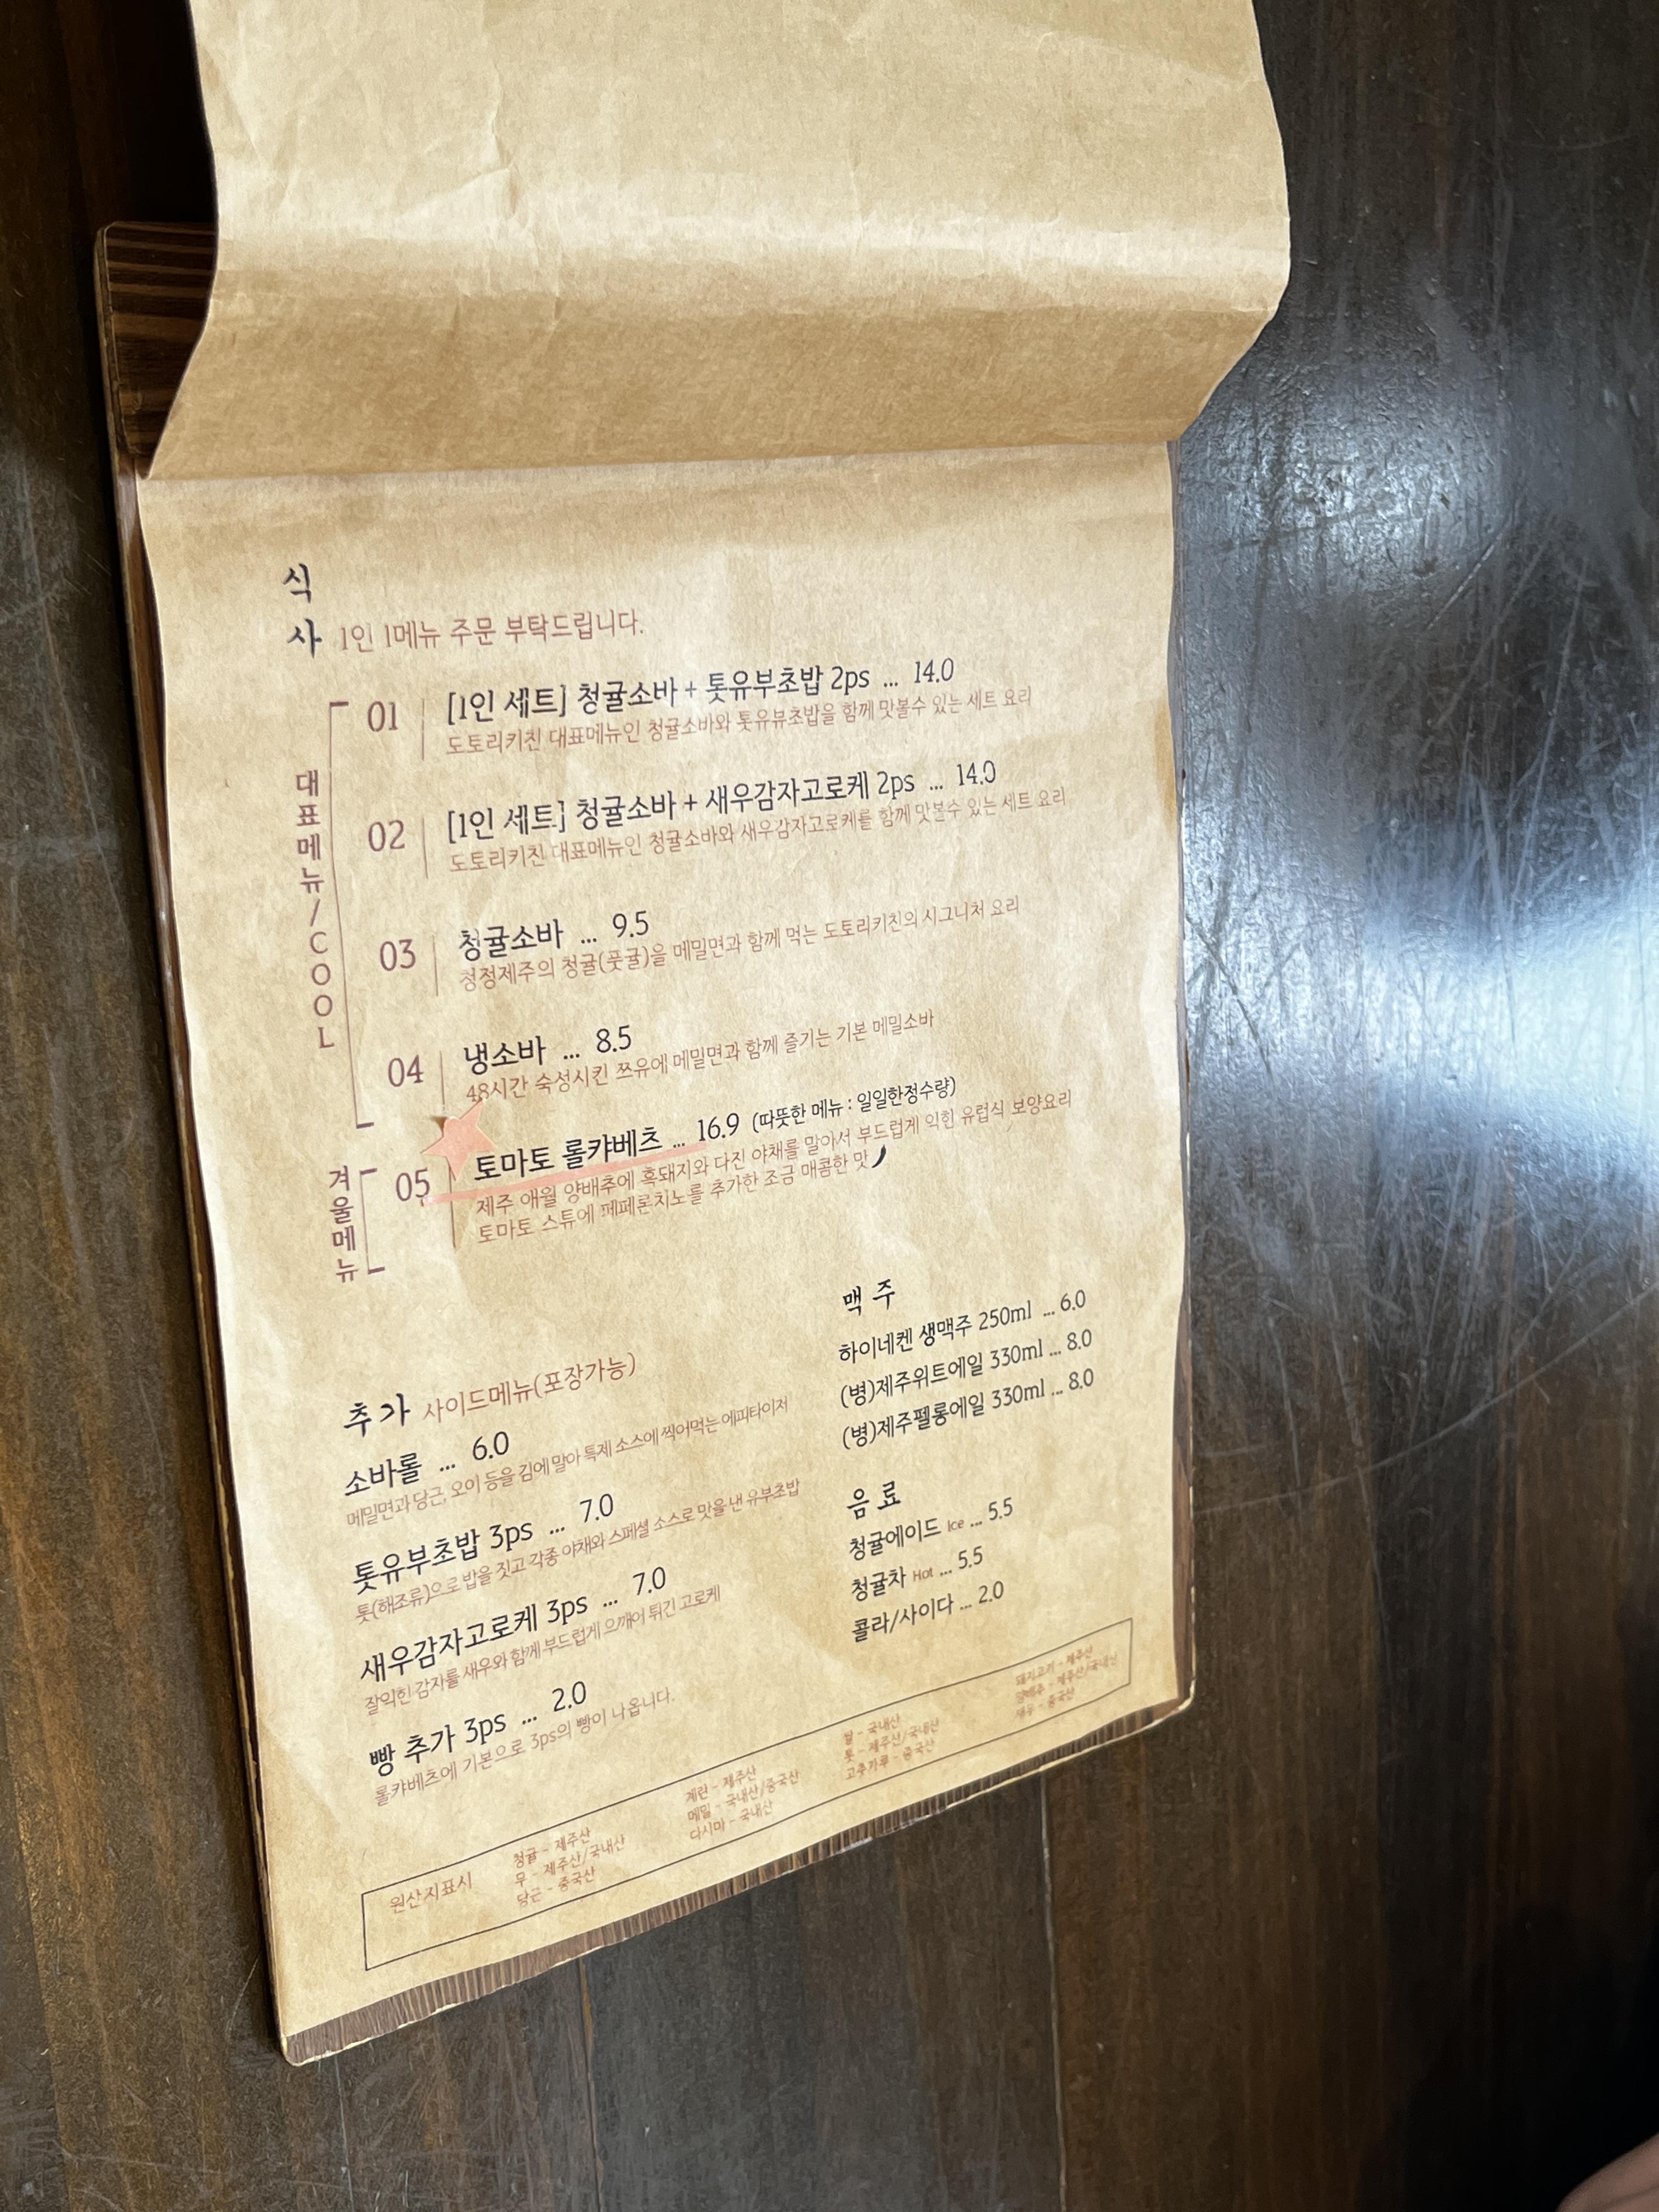 식사 1인 1메뉴 주문 부탁드립니다.
대표메뉴/COOL
01 [1인 세트] 청귤소바 + 톳유부초밥 2ps ... 14.0
도토리키친 대표메뉴인 청귤소바와 톳유뷰초밥을 함께 맛볼수 있는 세트 요리
02 [1인 세트] 청귤소바 + 새우감자고로케 2ps ... 14.0
도토리키친 대표메뉴인 청귤소바와 새우감자고로케를 함께 맛볼수 있는 세트 요리
03 청귤소바 ... 9.5
청정제주의 청귤(풋귤)을 메밀면과 함께 먹는 도토리키친의 시그니처 요리
04 냉소바 ... 8.5
48시간 숙성시킨 쯔유에 메밀면과 함께 즐기는 기본 메밀소바
겨울메뉴
05 토마토 롤캬베츠 ... 16.9 (따뜻한 메뉴 : 일일한정수량)
제주 애월 양배추에 흑돼지와 다진 야채를 말아서 부드럽게 익힌 유럽식 보양요리
토마토 스튜에 페페론치노를 추가한 조금 매콤한 맛
추가 사이드메뉴(포장가능)
소바롤 ... 6.0
메밀면과 당근, 오이 등을 김에 말아 특제 소스에 찍어먹는 에피타이저
톳유부초밥 3ps ... 7.0
톳(해조류)으로 밥을 짓고 각종 야채와 스페셜 소스로 맛을 낸 유부초밥
새우감자고로케 3ps ... 7.0
잘익힌 감자를 새우와 함께 부드럽게 으깨어 튀긴 고로케
빵 추가 3ps ... 2.0
롤캬베츠에 기본으로 3ps의 빵이 나옵니다.
맥주
하이네켄 생맥주 250ml ... 6.0
(병)제주위트에일 330ml ... 8.0
(병)제주펠롱에일 330ml ... 8.0
음료
청귤에이드 Ice ... 5.5
청귤차 Hot ... 5.5
콜라/사이다 ... 2.0
원산지표시
청귤 - 제주산
무 - 제주산/국내산
당근 - 중국산
계란 - 제주산
메밀 - 국내산/중국산
다시마 - 국내산
쌀 - 국내산
톳 - 제주산/국내산
고춧가루 - 중국산
돼지고기 - 제주산
양배추 - 제주산/국내산
새우 - 중국산